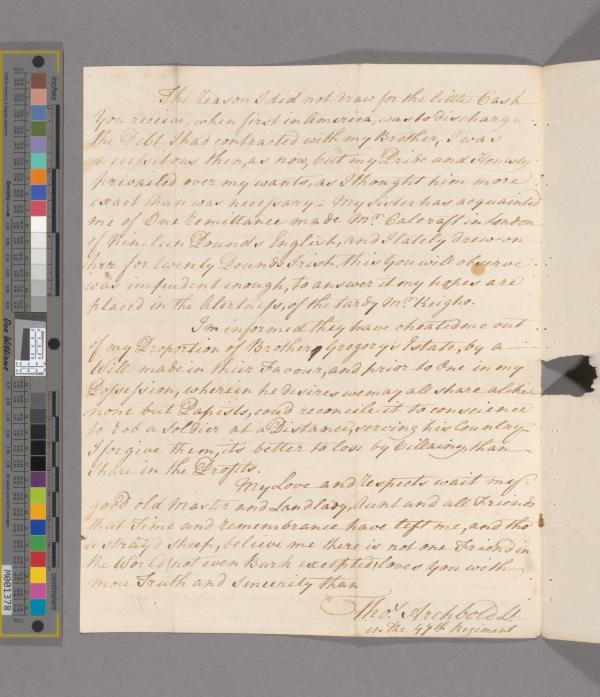 The reason I did not draw for the little Cash
You receive, when first in America, was to discharge
the Debt I had contracted with my Brother, I was
necessitous then, as now, but my Pride and Honesty
prevailed over my wants, as I thought him more
exact than was necessary - My Sister has acquainted
me of One remittance made Mr. Calcraft in London
of Nineteen Pounds English, and I lately drew on
her for twenty Pounds Irish, this You will observe
was impudent enough, to answer it my hopes are
placed in the Alertness, of the tardy Mr. Keigho.
I'm informed they have cheated me out
of my Proportion of Brother Gregory's Estate, by a
Will made in their Favour, and prior to One in my
Possession, wherein he desires we may all share alike
none but Papists, could reconcile it to conscience
to rob a Soldier at a Distance, serving his Country -
I forgive them, it's better to lose by Villainy, than
Share in the Profits.
My Love and respects wait my
good old Master and Landlady, Aunt and all Friends
that Time and remembrance have left me, and tho'
a stray'd sheep, believe me there is not one Friend in
the World (not even Burk excepted) loves You with
more Truth and sincerity than
Thos. Archbold Lt.
in the 47th Regiment
inches
centimeters
Don Williams
M001378